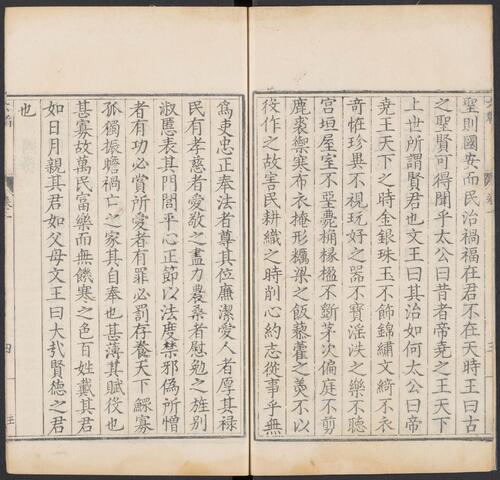 聖則國安而民治禍福在君不在天時王曰古
之聖賢可得聞乎太公曰昔者帝堯之王天下
上世所謂賢君也文王曰其治如何太公曰帝
堯王天下之時金銀珠玉不飾錦繡文綺不衣
奇恠珍異不視玩好之器不寳淫泆之樂不聽
宮垣屋室不堊甍桷椽楹不斵茅茨偏庭不剪
鹿裘禦寒布衣掩形糲粱之飯藜藿之羹不以
役作之故害民耕織之時削心約志從事乎無
爲吏忠正奉法者尊其位廉潔愛人者厚其祿
民有孝慈者愛敬之盡力農桑者慰勉之旌別
淑慝表其門閭平心正節以法度禁邪偽所憎
者有功必賞所愛者有罪必罰存養天下鰥寡
孤獨振贍禍亡之家其自奉也甚薄其賦役也
甚寡故萬民富樂而無饑寒之色百姓戴其君
如日月親其君如父母文王曰大哉賢德之君
也
四